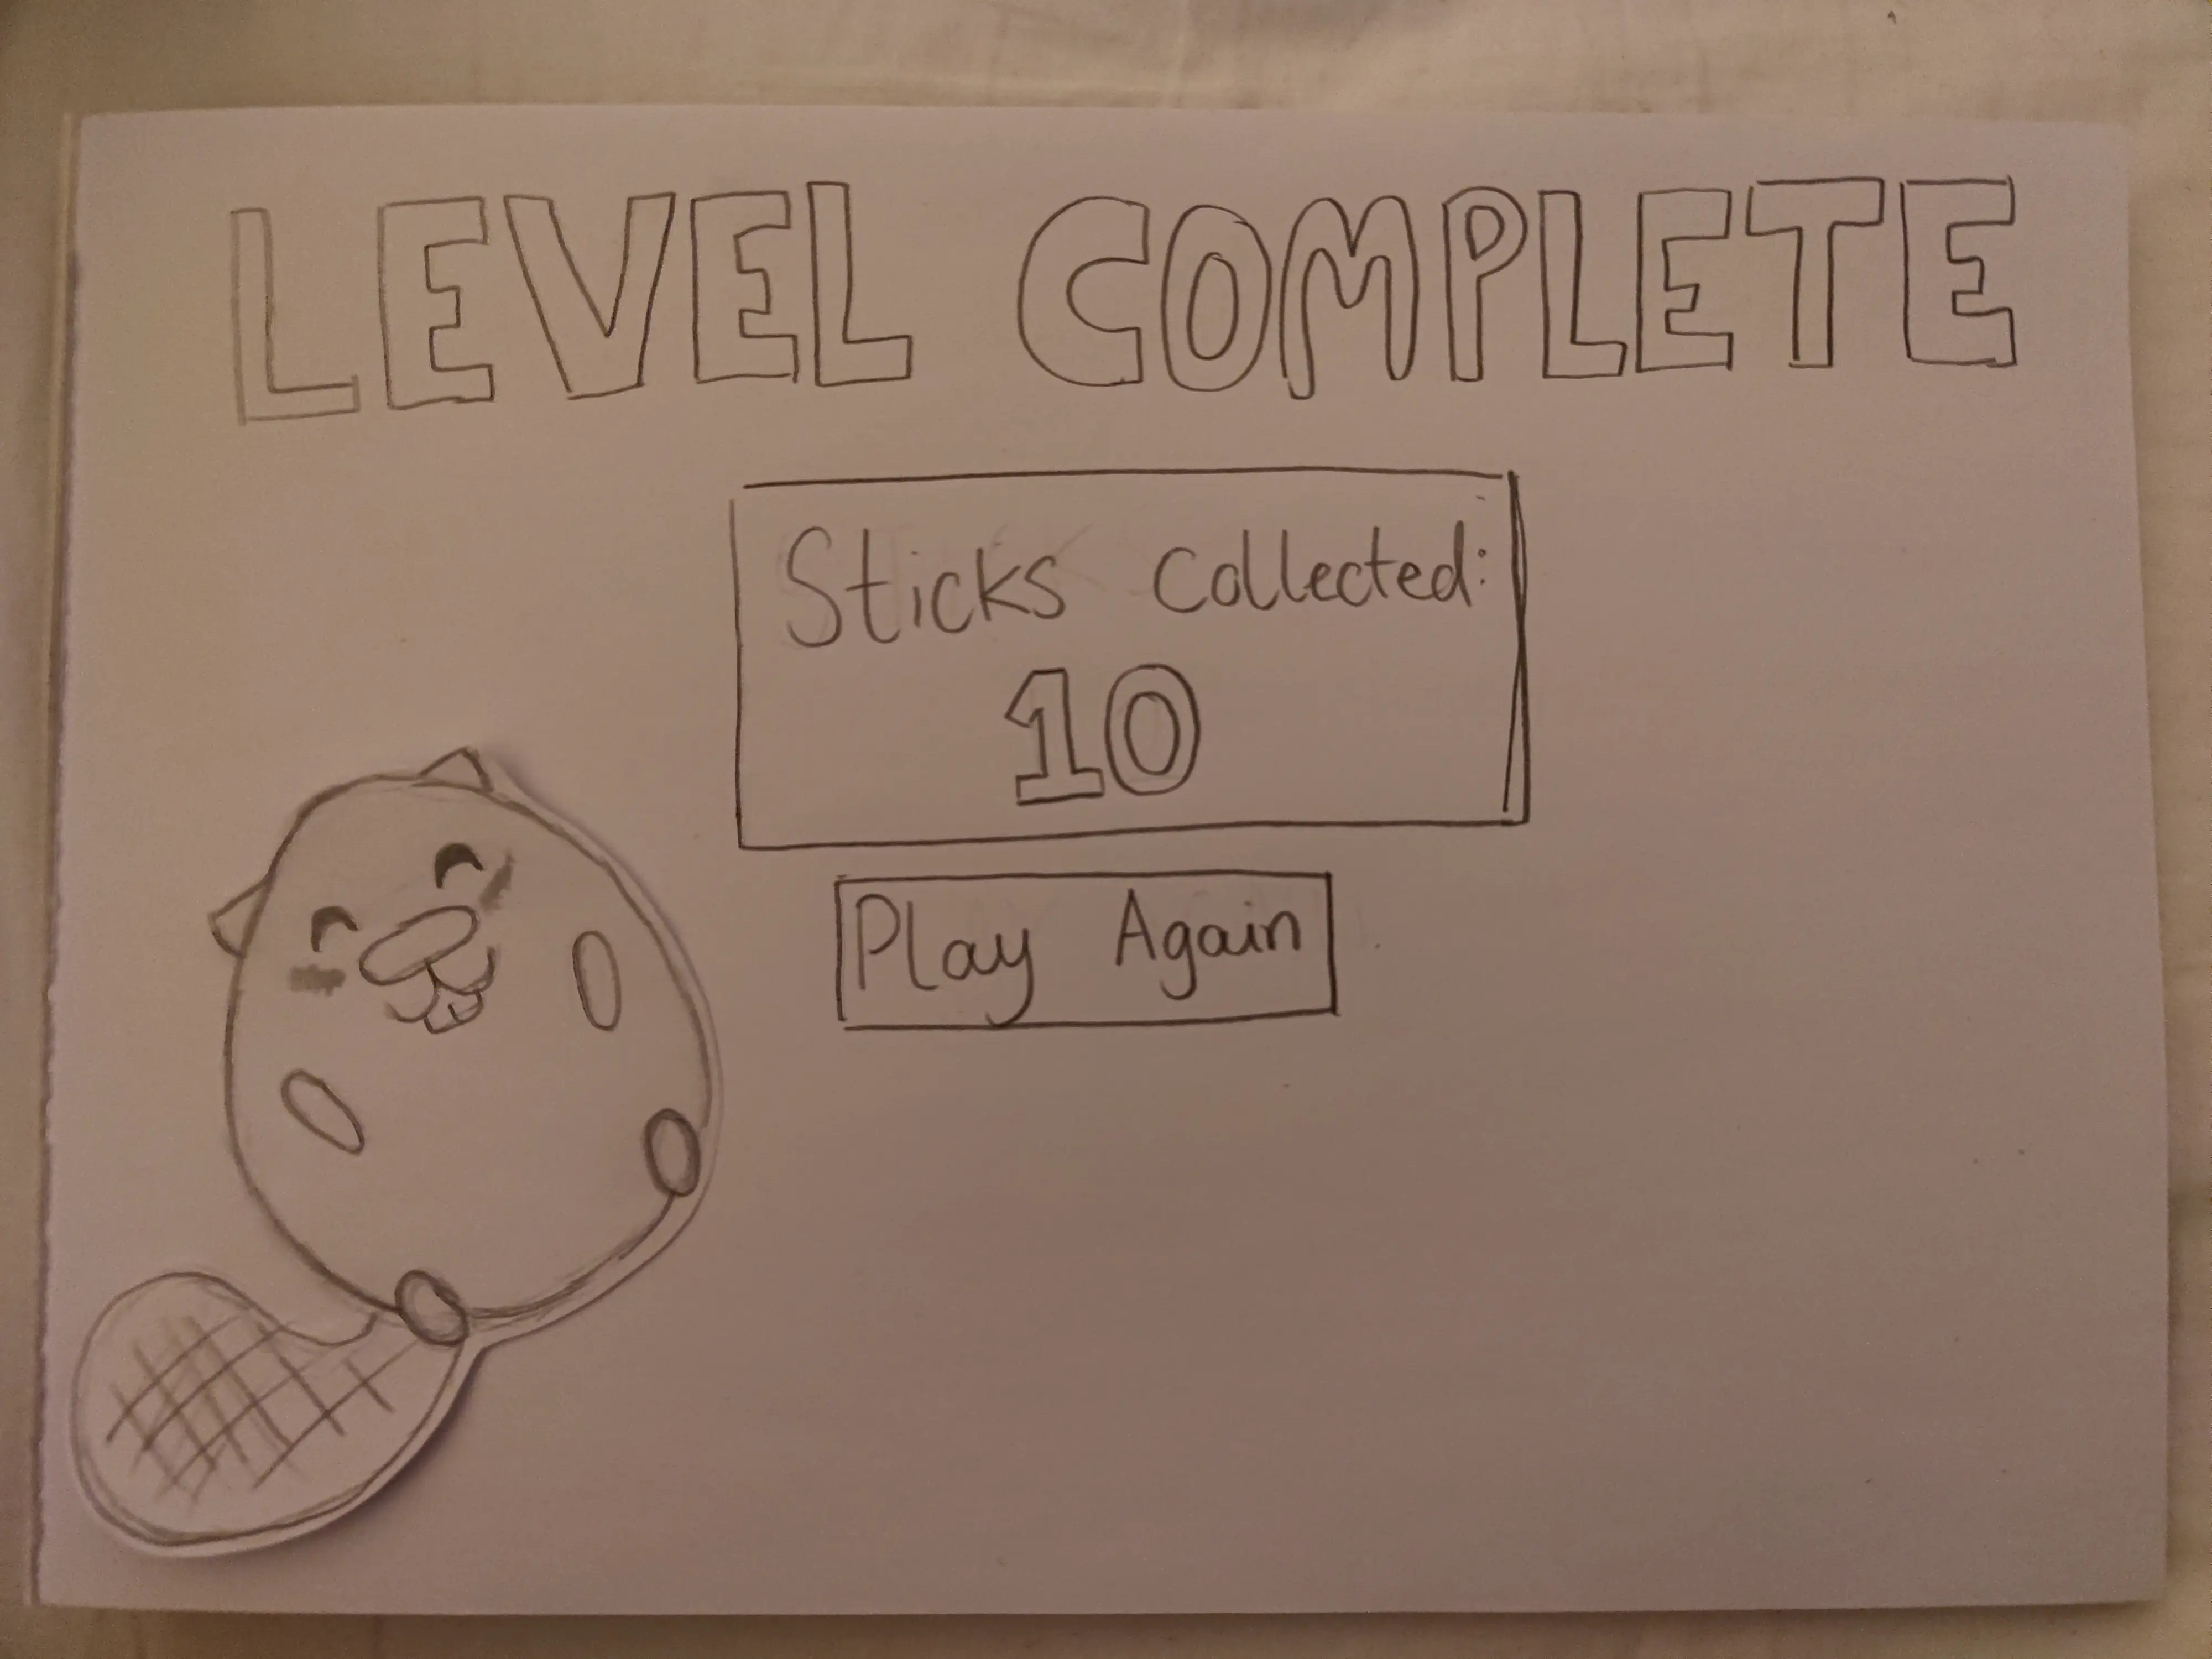 LEVEL COMPLETE
Sticks Collected:
10
Play Again